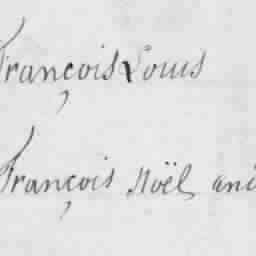 François Louis
François Noël